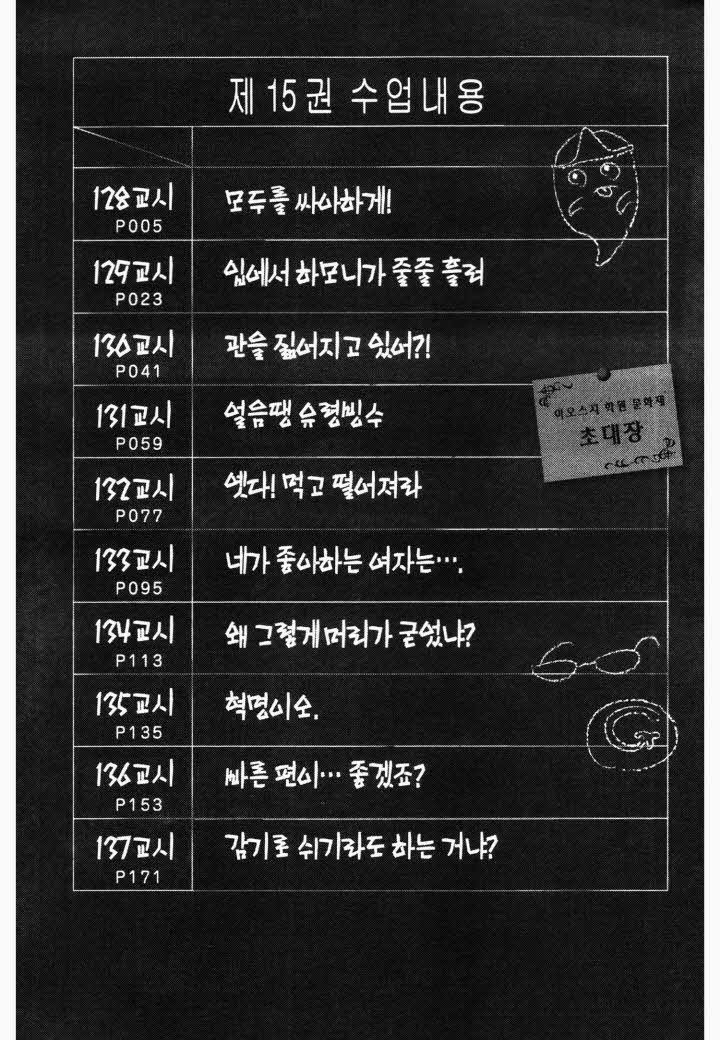 제 15권 수업내용
128교시
P005
모두를 싸아하게!
129교시
P023
입에서 하모니가 줄줄 흘러
130교시
P041
관을 짊어지고 있어?!
131교시
P059
얼음땡 유령빙수
이오스지 학원 문화제
초대장
132교시
P077
옛다! 먹고 떨어져라
133교시
P095
네가 좋아하는 여자는….
134교시
P113
왜 그렇게 머리가 굳었냐?
135교시
P135
혁명이오.
136교시
P153
빠른 편이… 좋겠죠?
137교시
P171
감기로 쉬기라도 하는 거냐?